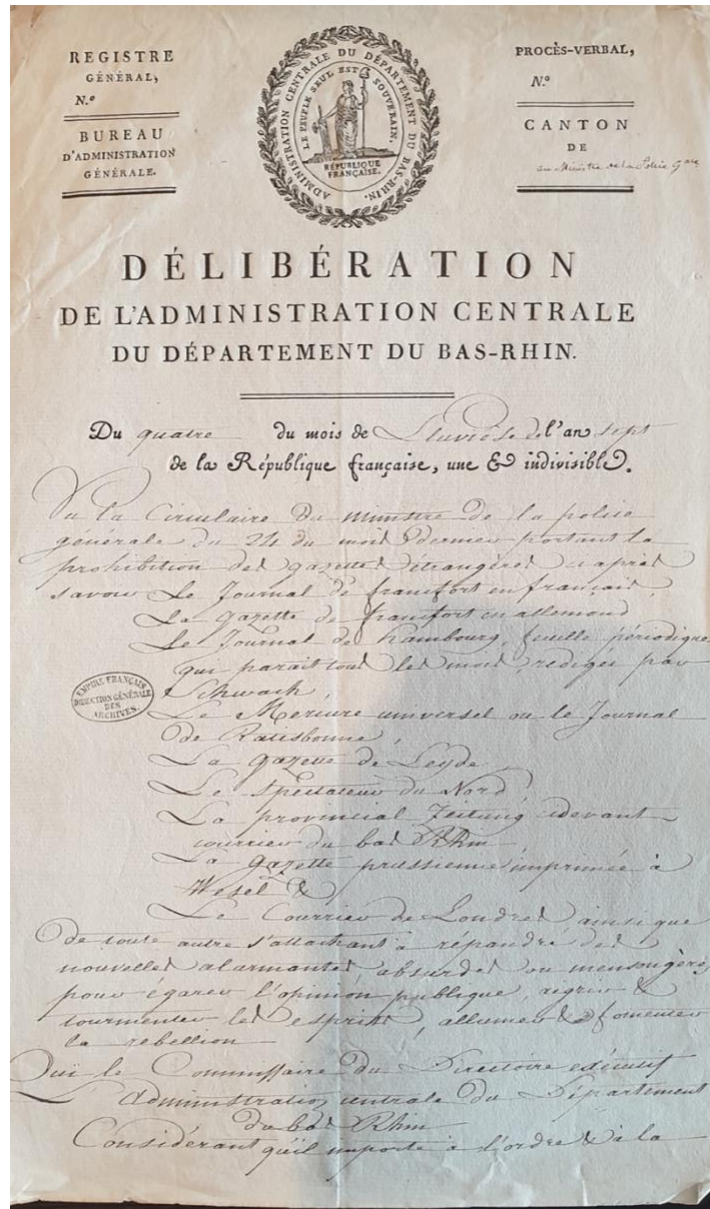 REGISTRE
GÉNÉRAL,
N.º
BUREAU
D'ADMINISTRATION
GÉNÉRALE.
ADMINISTRATION CENTRALE DU DÉPARTEMENT DU BAS-RHIN.
LE PEUPLE SEUL EST SOUVERAIN.
RÉPUBLIQUE
FRANÇAISE.
PROCÈS-VERBAL,
N.º
CANTON
DE
au Ministre de la Police Gale
DÉLIBÉRATION
DE L'ADMINISTRATION CENTRALE
DU DÉPARTEMENT DU BAS-RHIN.
Du quatre du mois de Pluviôse de l'an sept
de la République française, une & indivisible.
Vu la Circulaire du ministre de la police
générale du 24 du mois dernier portant la
prohibition des gazettes étrangères ci après
savoir Le Journal de francfort en français,
La gazette de francfort en allemand
Le Journal de hambourg, feuille périodique
qui parait tous les mois, redigée par
Schwach,
Le Mercure universel ou le Journal
de Ratisbonne,
La gazette de Leyde
Le Spectateur du Nord,
La provincial Zeitung cidevant
courrier du bas Rhin
La gazette prussienne imprimée à
Wesel &
Le Courrier de Londres ainsi que
de toute autre s'attachant à répandre des
nouvelles alarmantes absurdes ou mensongères
pour égarer l'opinion publique, aigrir &
tourmenter les esprits, allumer & fomenter
la rebellion
Oui le Commissaire du Directoire exécutif
L'Administration centrale du Département
du bas Rhin
Considérant qu'il importe à l'ordre & à la
EMPIRE FRANÇAIS
DIRECTION GÉNÉRALE
DES
ARCHIVES.